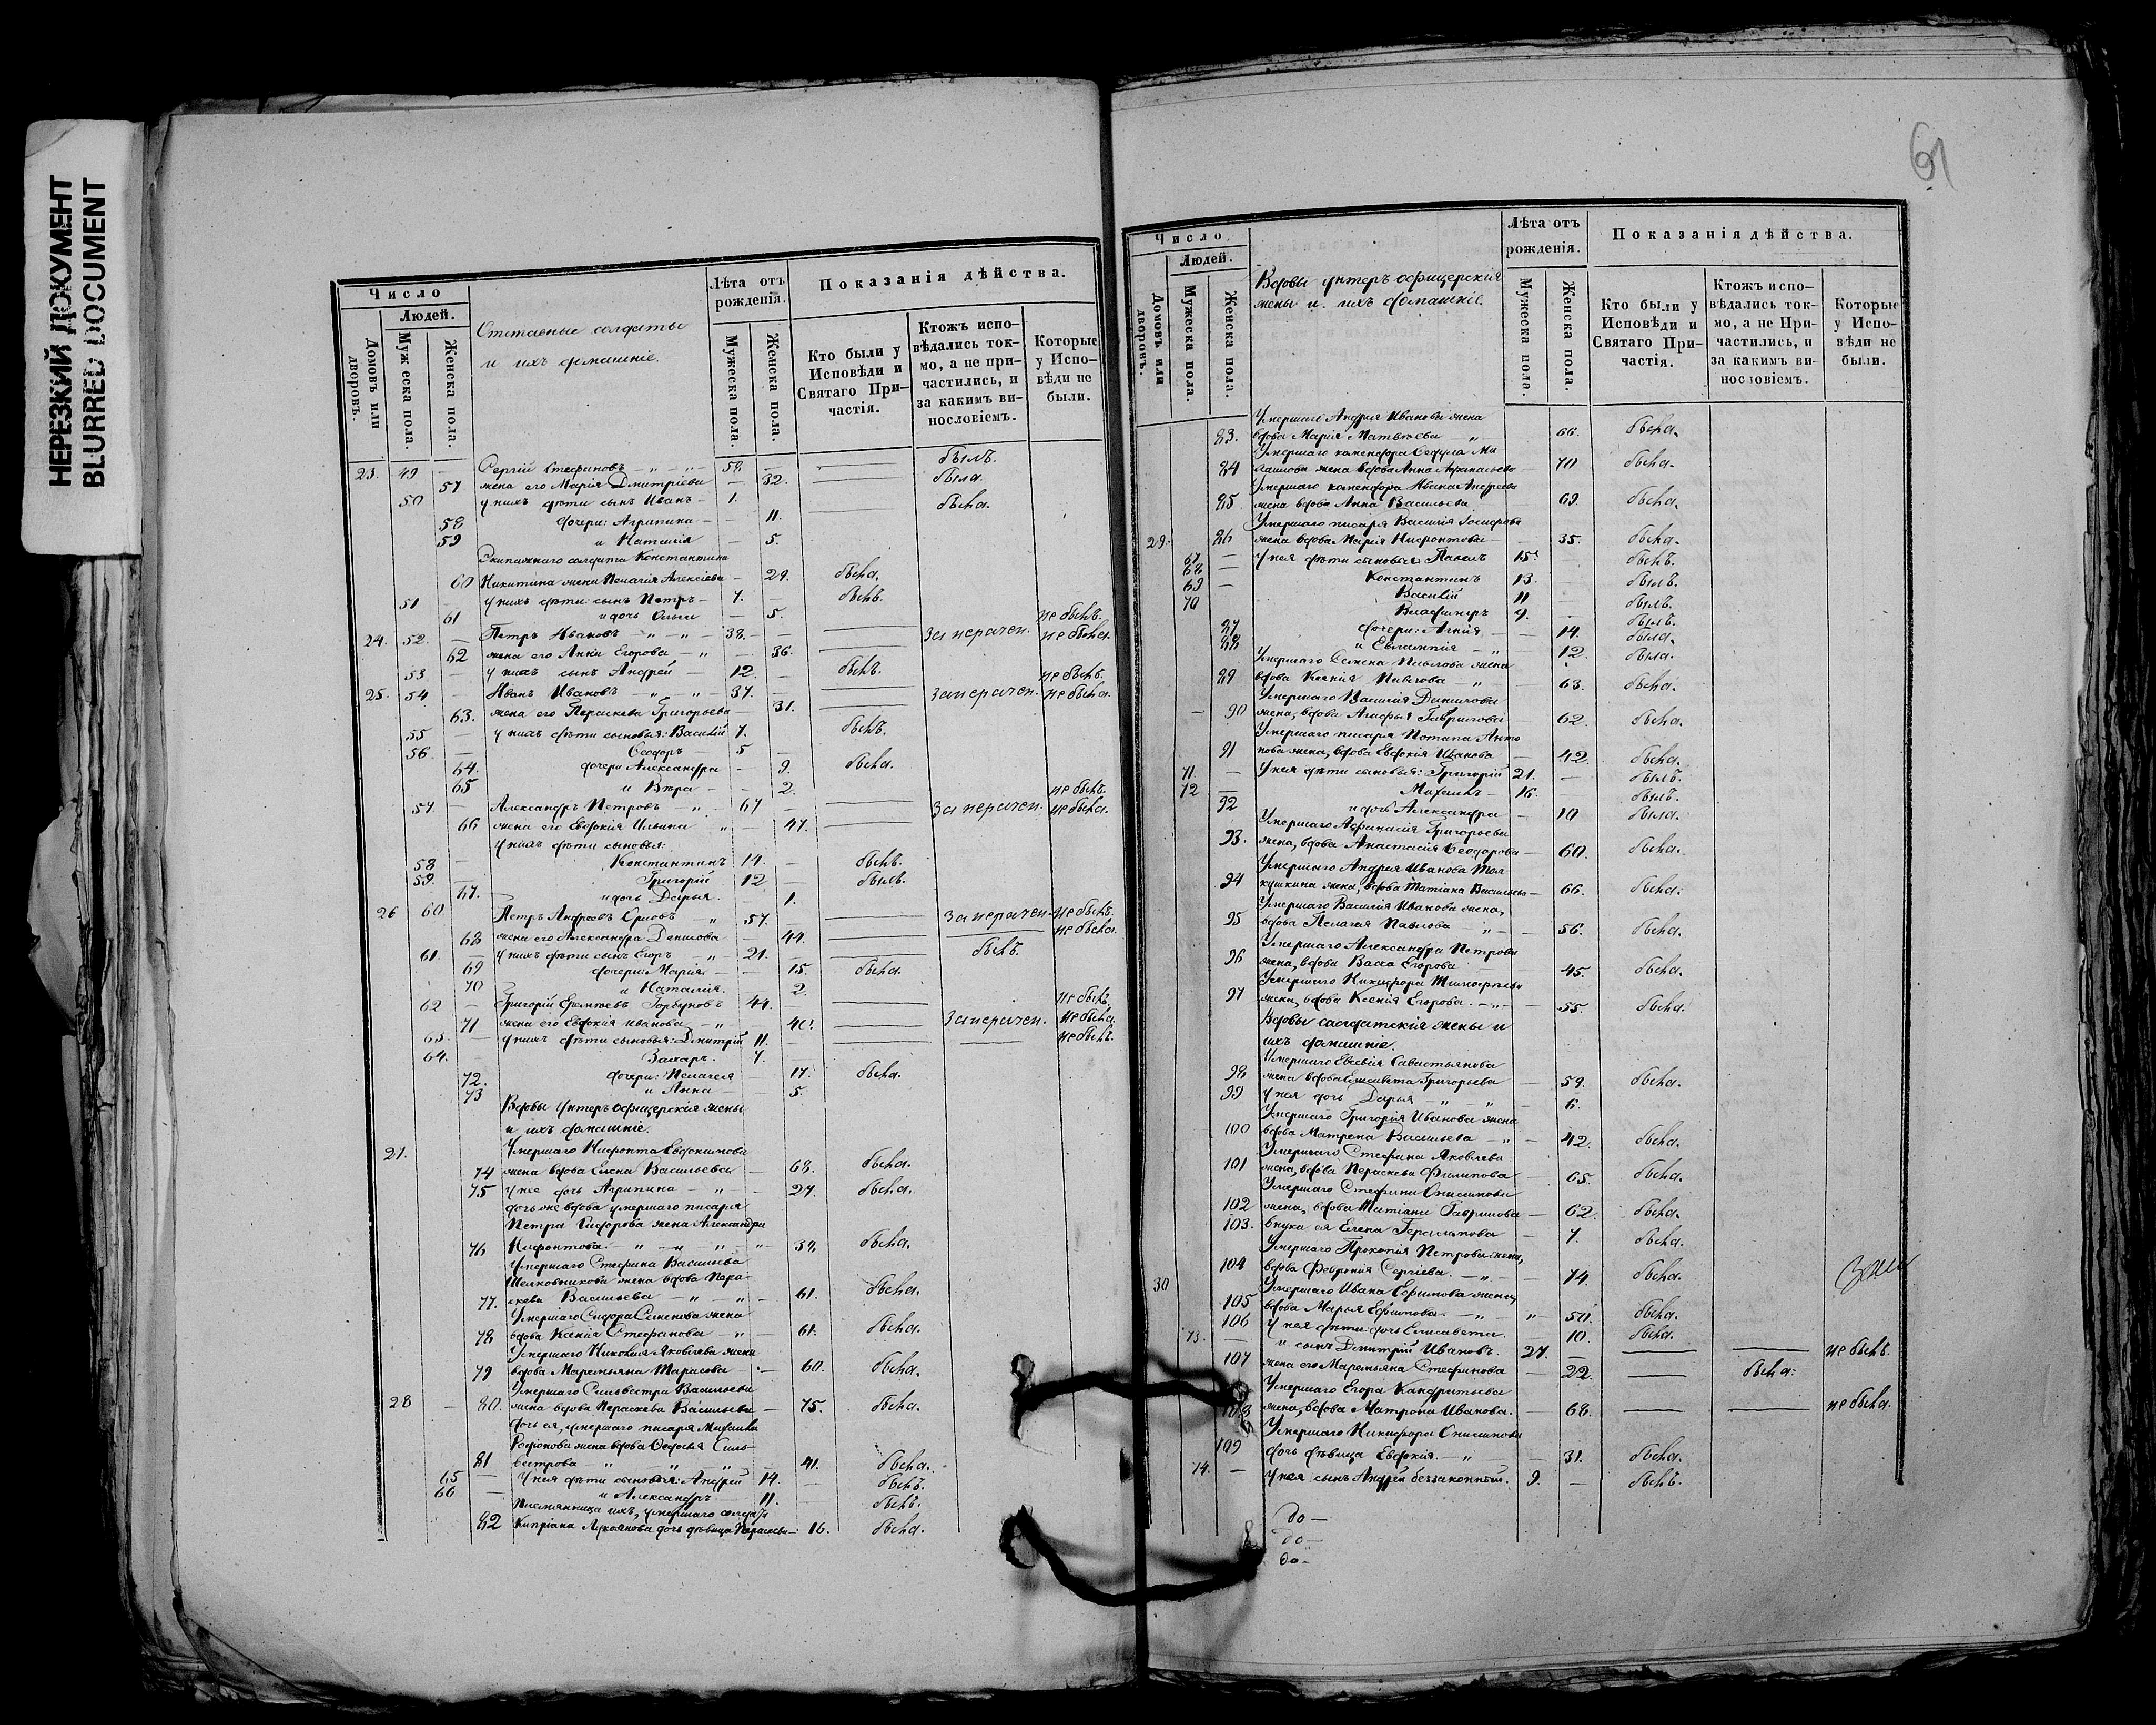 НЕРЕЗКИЙ ДОКУМЕНТ
BLURRED DOCUMENT
Число
Людей.
Домовъ или дворовъ.
Мужеска пола.
Женска пола.
Отставные солдаты
и ихъ домашніе.
Лѣта отъ рожденія.
Мужеска пола.
Женска пола.
Показанія дѣйства.
Кто были у Исповѣди и Святаго При-
частія.
Ктожъ испо-
вѣдались ток-
мо, а не при-
частились, и
за какимъ ви-
нословіемъ.
Которые
у Испо-
вѣди не
были.
23. 49 — Сергій Стефановъ — „ — „ — 58 — былъ.
57 жена его Марія Дмитріева — 32. была.
50 у нихъ дѣти сынъ Иванъ — 1. была.
58 дочери: Агрипина — — 11.
59 и Наталія — 5.
Экипажнаго солдата Константина
60 Никитина жена Пелагія Алексіева — 29. была.
51 — у нихъ дѣти: сынъ Петръ — 7. — былъ.
61 и дочь Ольга — 5.
24. 52. — Петръ Ивановъ — „ — „ — 38. — за нерачен. не былъ.
62 жена его Анна Егорова — „ — 36. не была.
53 — у нихъ сынъ Андрей — 12. былъ.
25. 54 — Иванъ Ивановъ — „ — „ — 37. — за нерачен. не былъ.
63. жена его Параскева Григорьева — 31. не была.
55 — у нихъ дѣти сыновья: Василій 7. былъ.
56 — Ѳеодоръ — 5 —
64. дочери Александра — 9. была.
65 и Вѣра — — 2.
57 — Александръ Петровъ — „ 67 — за нерачен. не былъ.
66 жена его Евдокія Ильина „ — 47. не была.
у нихъ дѣти сыновья:
58 — Константинъ 14. — былъ.
59. — Григорій 12 — былъ.
67. и дочь Дарья. — 1.
26 60 Петръ Андреевъ Орловъ „ 57. за нерачен. не былъ.
68 жена его Александра Денисова — 44. не была.
61. — у нихъ дѣти сынъ Егоръ „ 21. — былъ.
69 дочери: Марія — — 15. была.
70 и Наталія. — 2.
62 — Григорій Еремѣевъ Горбуновъ 44. не былъ.
71 жена его Евдокія Иванова — „ 40. за нерачен. не была.
63. — у нихъ дѣти сыновья: Дмитрій 11. — не былъ.
64. — Захаръ. 7. —
72. дочери: Пелагея — 17. была.
73 и Анна — 5.
Вдовы Унтеръ офицерскія жены
и ихъ домашніе.
27. Умершаго Нифонта Евдокимова
74 жена вдова Елена Васильева — 68. была.
75 у нее дочь Агрипина — „ — 27. была.
дочь же вдова умершаго писаря
Петра Сидорова жена Александра
76 Нифонтова. — „ — „ „ — „ — 39. была.
Умершаго Стефана Васильева
Шелковникова жена вдова Пара-
77. скева Васильева — „ — „ — 61. была.
Умершаго Сидора Семенова жена
78 вдова Ксенія Стефанова — „ — 61. была.
Умершаго Николая Яковлева жена
79 вдова Маремьяна Тарасова — 60. была.
Умершаго Сильвестра Васильева
28 — 80. жена вдова Параскева Васильева — 75. была.
дочь ея, умершаго писаря Михаила
Родіонова жена вдова Ѳедосья Силь-
81 вестрова — „ — „ — 41. была.
65 — У нея дѣти сыновья: Андрей 14. — былъ.
66 — и Александръ — 11. — былъ.
Племянница ихъ, умершаго солдата
82 Кипріана Лукоянова дочь дѣвица Параскева — 16. была.
61
Число
Людей.
Домовъ или дворовъ.
Мужеска пола.
Женска пола.
Вдовы унтеръ офицерскія
жены и ихъ домашніе.
Лѣта отъ рожденія.
Мужеска пола
Женска пола.
Показанія дѣйства.
Кто были у
Исповѣди и
Святаго При-
частія.
Ктожъ испо-
вѣдались ток-
мо, а не При-
частились, и
за какимъ ви-
нословіемъ.
Которые
у Испо-
вѣди не
были.
Умершаго Андрея Иванова жена
83. вдова Марія Матвѣева „ 66. была.
84 жена вдова Анна Афанасьева — 70 была.
85 жена вдова Анна Васильева 69. была.
Умершаго писаря Василія Іосифова
29. 86 жена вдова Марія Нифонтова — 35. была.
67. — У нея дѣти сыновья: Павелъ 15. былъ.
68 — Константинъ 13. былъ.
69 — Василій 11 — былъ.
70 Владиміръ 9. — былъ.
87 дочери: Агнія — — 14. была.
88 и Евлампія — „ — 12. была.
Умершаго Семена Павлова жена
89 вдова Ксенія Павлова — „ 63. была.
Умершаго Василія Данилова
— 90 жена, вдова Агафья Гаврилова 62. была.
Умершаго писаря Потапа Анто
91 нова жена, вдова Евдокія Иванова — 42. была.
71. — У нея дѣти сыновья: Григорій 21. — былъ.
72 — Михаилъ — 16. — былъ.
92 и дочь Александра — 10 была.
Умершаго Афанасія Григорьева
93. жена, вдова Анастасія Ѳеодорова — 60. была.
Умершаго Андрея Иванова Тол
94 кушкина жена, вдова Татіана Васильева — 66. была.
Умершаго Василія Иванова жена,
95 вдова Пелагея Павлова — „ — 56. была.
Умершаго Александра Петрова
96 жена, вдова Васса Егорова 45. была.
Умершаго Никифора Тимофеева
97 жена, вдова Ксенія Егорова. — „ — 55. была.
Вдовы солдатскія жены и
ихъ домашніе.
Умершаго Евсевія Савастьянова
98 жена вдова Елисавета Григорьева — 59. была.
99 У нея дочь Дарья — „ — „ — 6.
Умершаго Григорія Иванова жена
100 вдова Матрена Васильева — „ — 42. была.
Умершаго Стефана Яковлева
101 жена, вдова Параскева Филипова — 65. была.
Умершаго Стефана Онисимова
102 жена, вдова Татіана Гаврилова — 62. была.
103. внука ея Елена Герасимова — 7. была.
Умершаго Прокопія Петрова жена,
104 вдова Февронія Сергіева. — „ — 74. была.
30 Умершаго Ивана Ефимова жена,
105 вдова Марья Ефимова. — „ — „ — 50. была.
106 У нея дѣти: дочь Елисавета. — 10. была.
73. — и сынъ Дмитрій Ивановъ. 27. — не былъ.
107 жена его Маремьяна Стефанова — 22. была.
Умершаго Егора Кандратьева
108 жена, вдова Матрона Иванова. — 68. не была.
Умершаго Никифора Онисимова
109 дочь дѣвица Евдокія. — „ — 31. была.
74. — У нея сынъ Андрей беззаконный. 9. — былъ.
до —
до —
до —